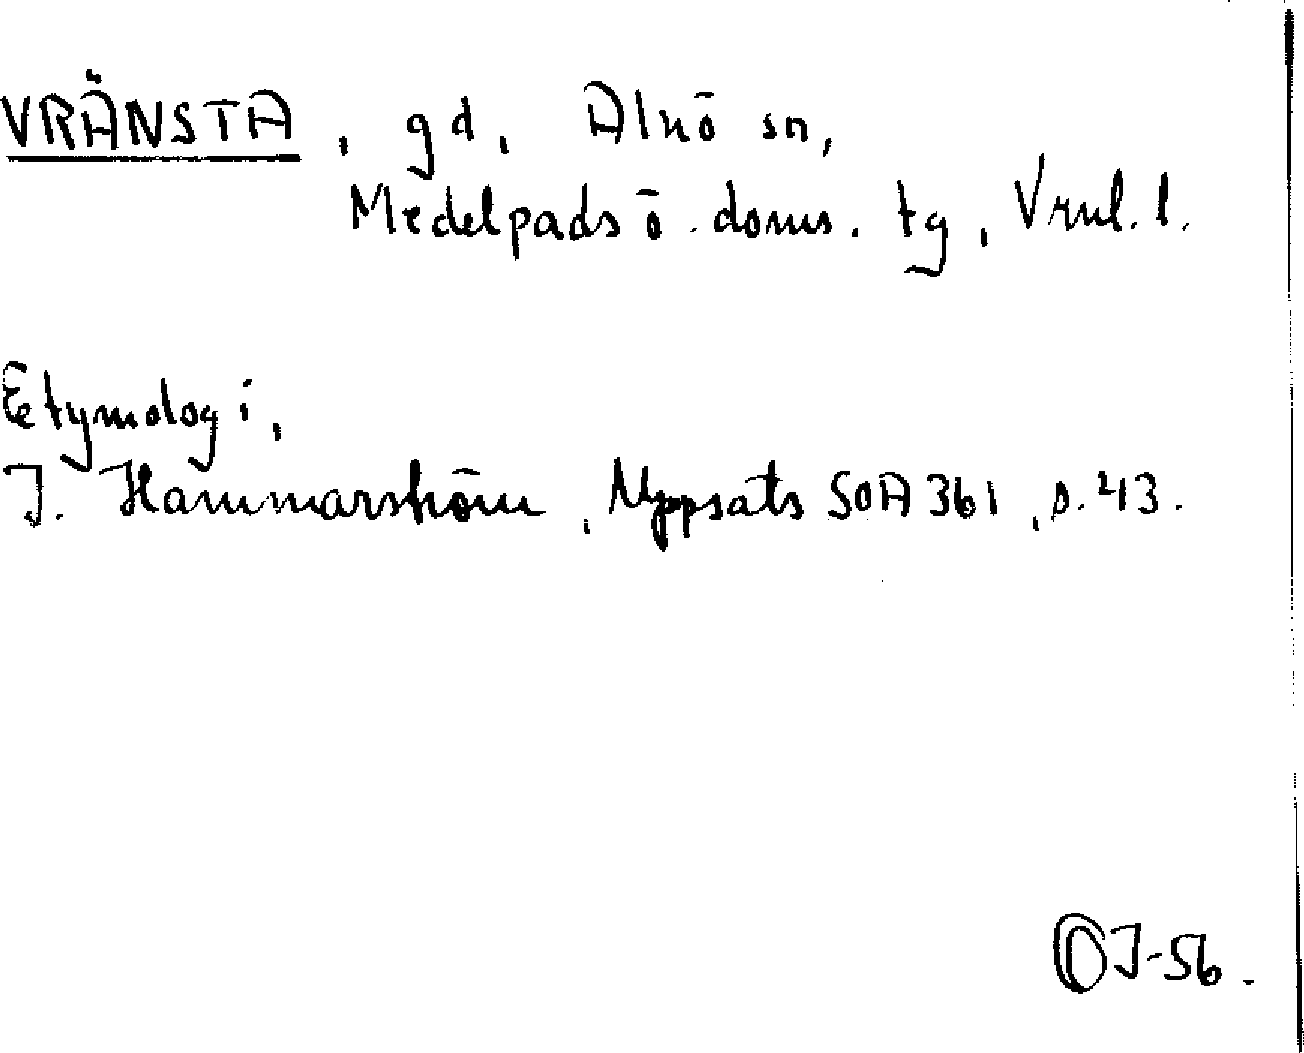 VRÄNSTA, gd, Alnö sn,
Medelpads ö. doms. tg, Vrnl. l.
Etymologi,
J. Hammarström, Uppsats SOA 361, s. 43.
OJ-56.